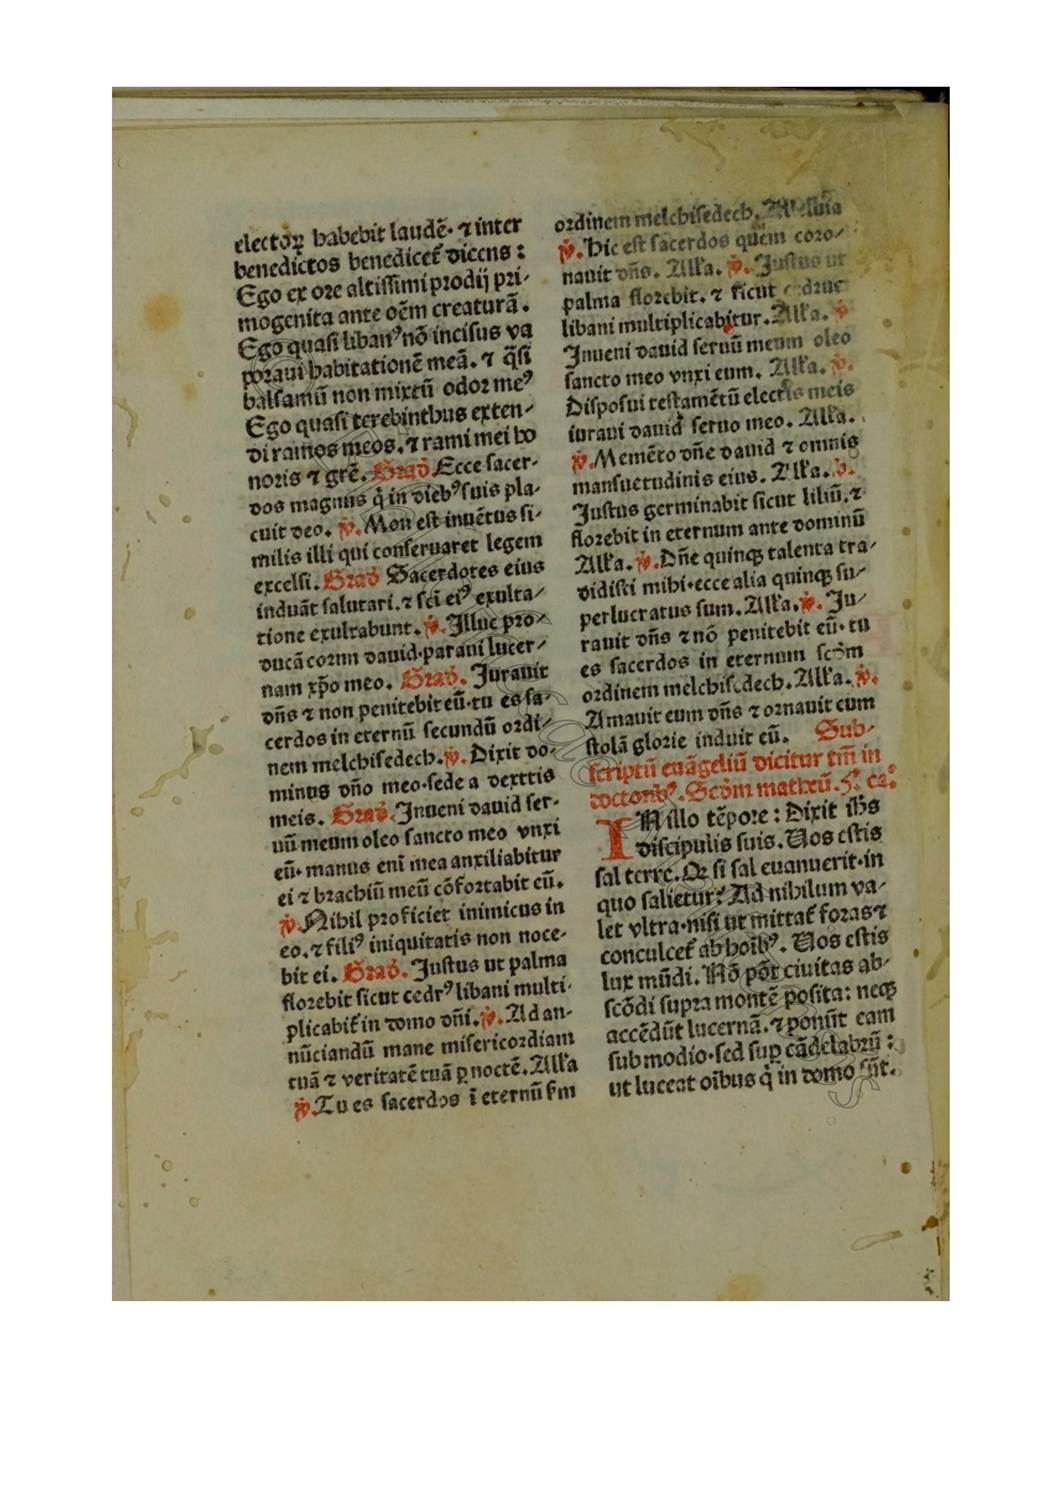 electoꝝ habebit laudē· ⁊ inter
benedictos benedicet᷑ dicens :
Ego ex ore altissimi prodij pri-
mogenita ante oēm creaturā.
Ego quasi libanꝰ nō incisus va
poraui habitationē meā. ⁊ q̄si
balsamū non mixtū odor meꝰ
Ego quasi terebinthus exten-
di ramos meos. ⁊ rami mei ho
noris ⁊ grē. Grad̄ Ecce sacer-
dos magnus q̇ in diebꝰ suis pla-
cuit deo. ꝟ. Non est inuētus si-
milis illi qui conseruaret legem
excelsi. Grad̄ Sacerdotes eius
induāt salutari. ⁊ sc̄i eiꝰ exulta-
tione exultabunt. ꝟ. Illuc pro-
ducā cornu dauid· paraui lucer-
nam xp̄o meo. Grad̄. Iurauit
dn̄s ⁊ non penitebit eū· tu es sa-
cerdos in eternū secundū ordi-
nem melchisedech. ꝟ. Dixit do-
minus dn̄o meo· sede a dextris
meis. Grad̄. Inueni dauid ser-
uū meum oleo sancto meo vnxi
eū· manus enī mea auxiliabitur
ei ⁊ brachiū meū cōfortabit eū.
ꝟ. Nihil proficiet inimicus in
eo. ⁊ filiꝰ iniquitatis non noce-
bit ei. Grad̄. Justus ut palma
florebit sicut cedrꝰ libani multi-
plicabit᷑ in domo dn̄i. ꝟ. Ad an-
nūciandū mane misericordiam
tuā ⁊ veritatē tuā ꝑ noctē. Alła
ꝟ. Tu es sacerdos ī eternū ẜm
ordinem melchisedech. Alleluia
ꝟ. Hic est sacerdos quem coro-
nauit dn̄s. Alła. ꝟ. Justus ut
palma florebit. ⁊ sicut cedrus
libani multiplicabitur. Alła. ꝟ
Inueni dauid seruū meum oleo
sancto meo vnxi eum. Alła. ꝟ.
Disposui testamētū electis meis
iuraui dauid seruo meo. Alła.
ꝟ. Memēto dn̄e dauid ⁊ omnis
mansuetudinis eius. Alła. ꝟ.
Justus germinabit sicut liliū. ⁊
florebit in eternum ante dominū
Alła. ꝟ. Dn̄e quinqꝫ talenta tra-
didisti mihi· ecce alia quinqꝫ su-
perlucratus sum. Alła. ꝟ. Ju-
rauit dn̄s ⁊ nō penitebit eū· tu
es sacerdos in eternum scd̄m
ordinem melchisedech. Alła. ꝟ.
Amauit eum dn̄s ⁊ ornauit eum
stolā glorie induit eū. Sub-
scriptū euāgeliū dicitur tm̄ in
doctoribꝰ. Scd̄m matheū. 5°. ca°.
IN illo tēpore : Dixit ihs
discipulis suis. Uos estis
sal terre. Qꝫ si sal euanuerit· in
quo salietur? Ad nihilum va-
let vltra· nisi ut mittat᷑ foras ⁊
conculcet᷑ ab hoībꝰ. Uos estis
lux mūdi. Nō pōt ciuitas ab-
scōdi supra montē posita: neqꝫ
accēdūt lucernā. ⁊ ponūt eam
sub modio· sed suꝑ cādelabrū :
ut luceat oībus q̇ in domo sūt.